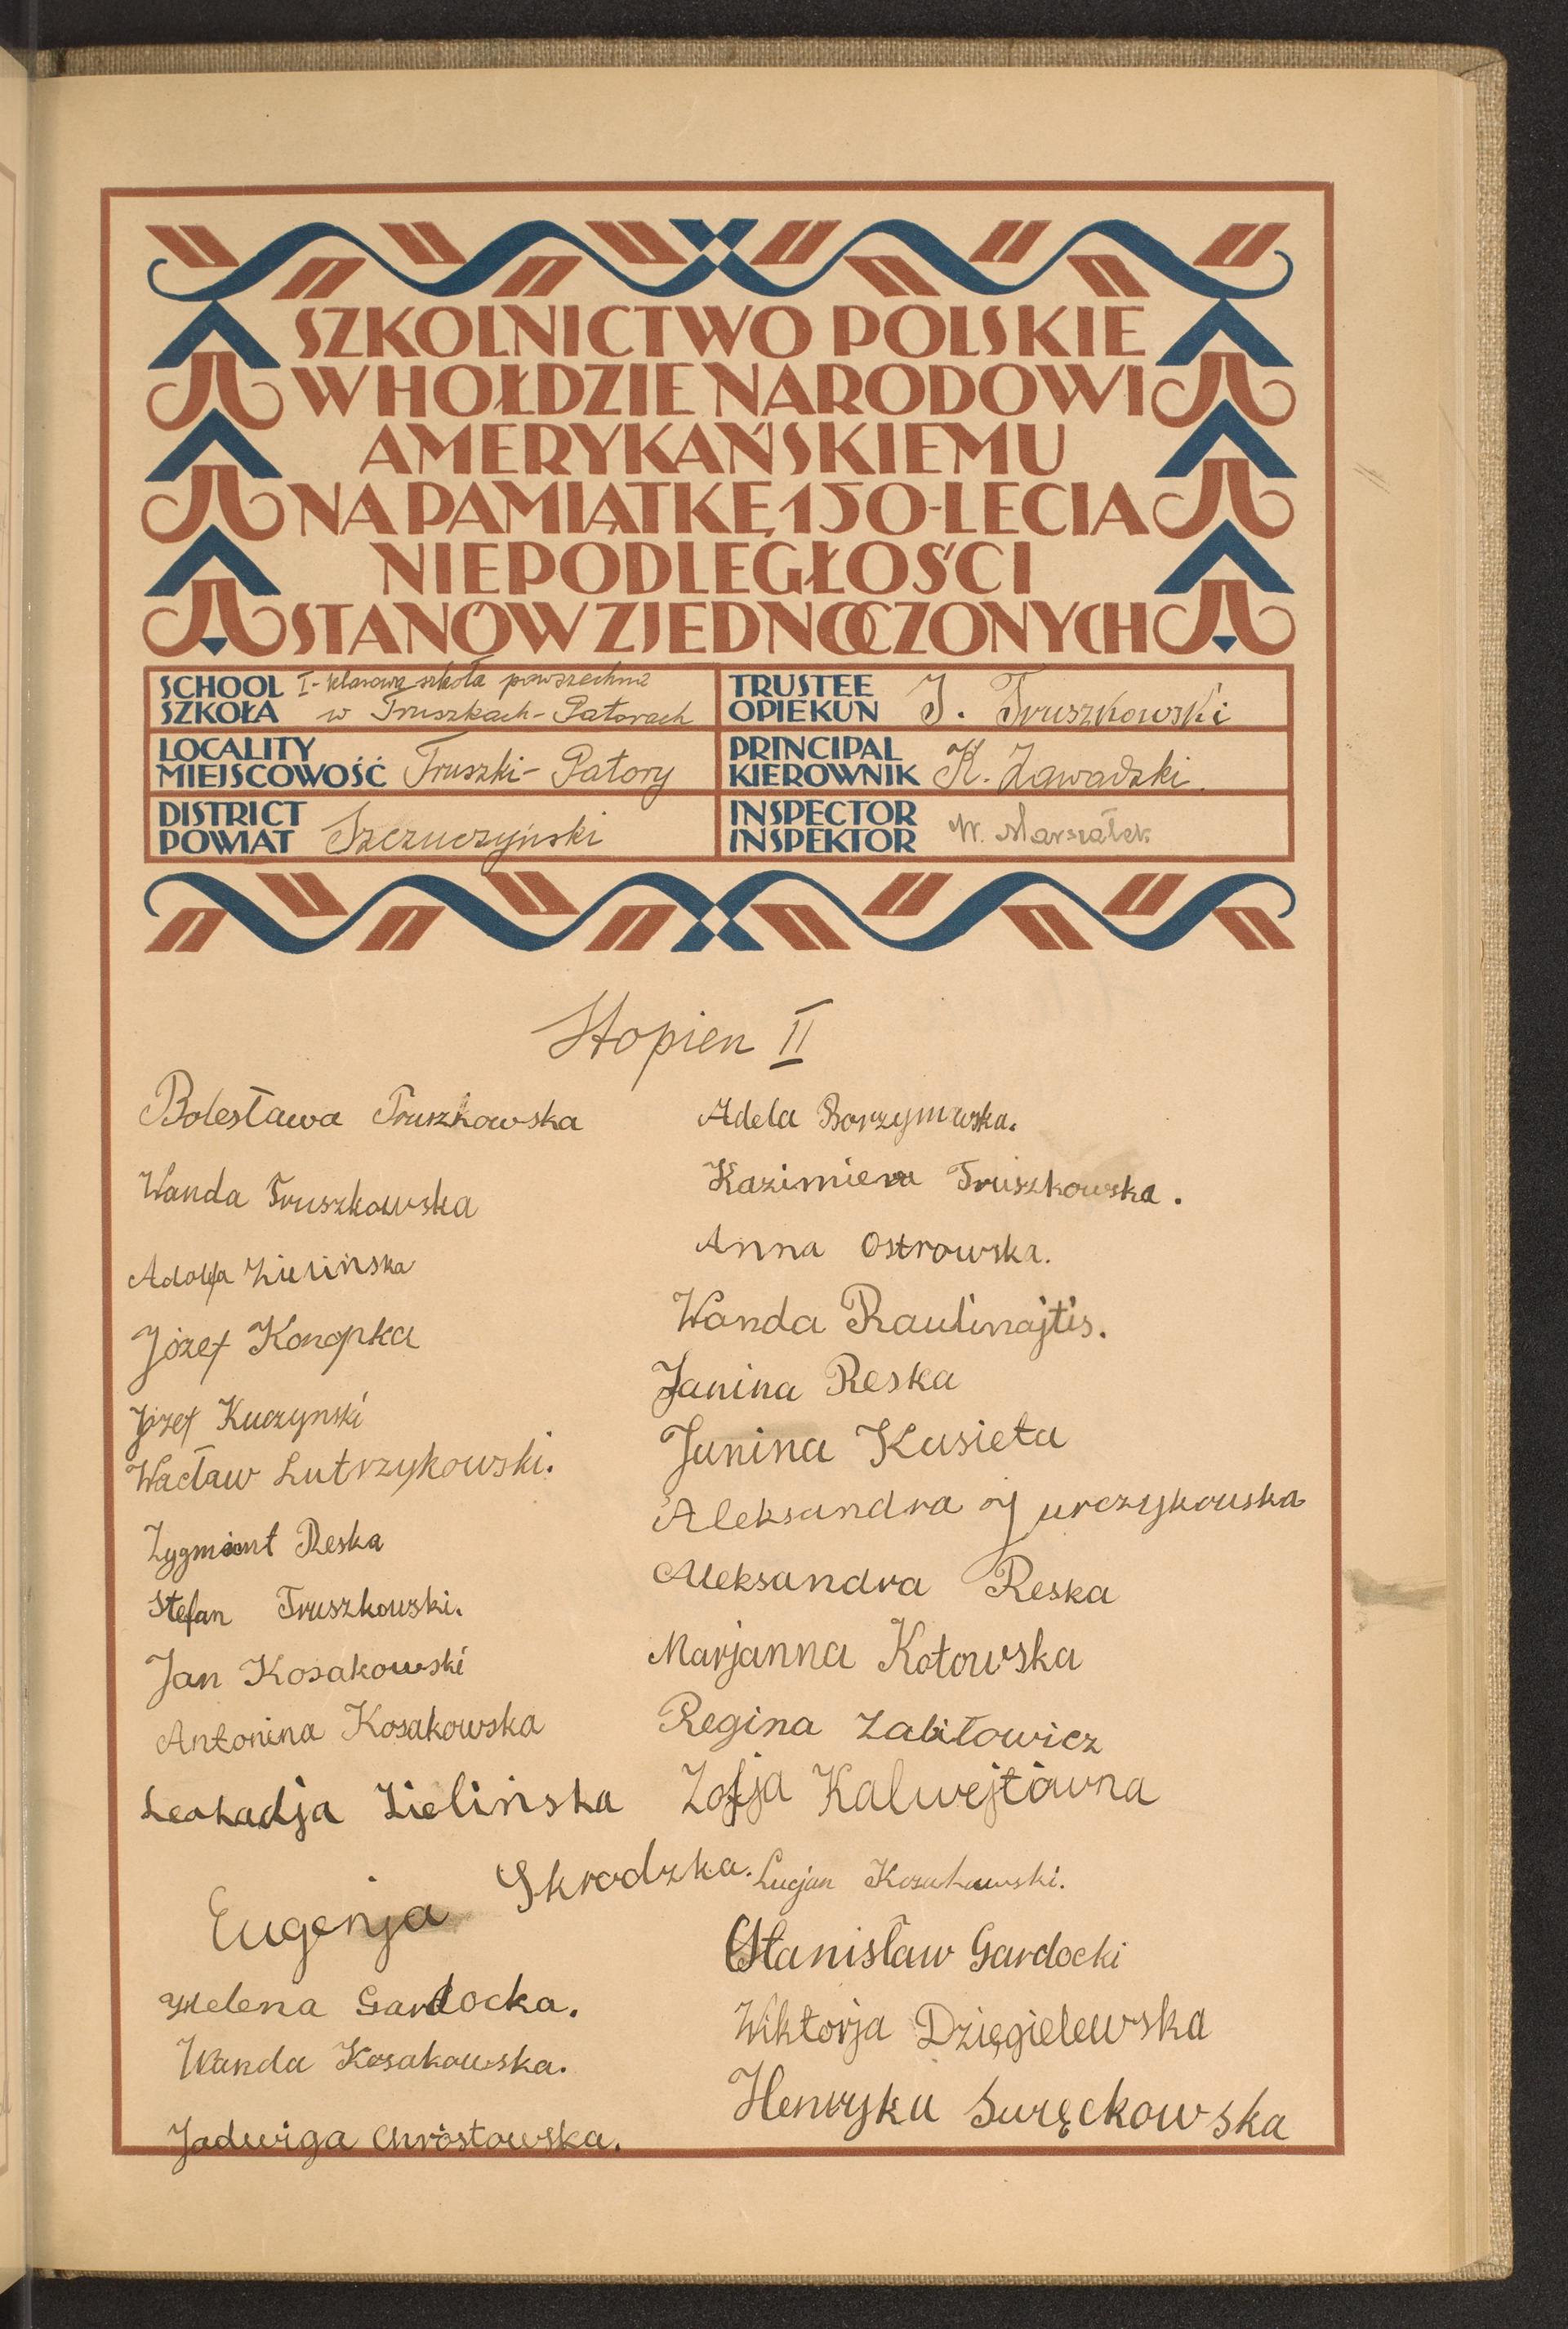 SZKOLNICTWO POLSKIE
W HOŁDZIE NARODOWI
AMERYKAŃSKIEMU
NA PAMIĄTKĘ 150-LECIA
NIEPODLEGŁOŚCI
STANÓW ZJEDNOCZONYCH
SCHOOL
SZKOŁA
I-klasowa szkoła powszechna
w Truszkach-Patorach
TRUSTEE
OPIEKUN
J. Truszkowski
LOCALITY
MIEJSCOWOŚĆ
Truszki-Patory
PRINCIPAL
KIEROWNIK
K. Zawadzki.
DISTRICT
POWIAT
Szczuczyński
INSPECTOR
INSPEKTOR
W. Marszałek
Stopien II
Bolesława Truszkowska
Wanda Truszkowska
Adolfa Zielińska
Józef Konopka
Józef Kuczynski
Wacław Lutrzykowski.
Zygmunt Reska
Stefan Truszkowski.
Jan Kosakowski
Antonina Kosakowska
Leokadja Zielińska
Eugenja Skrodzka.
Helena Gardocka.
Wanda Kosakowska.
Jadwiga Chróstowska.
Adela Borzymowska.
Kazimiera Truszkowska.
Anna Ostrowska.
Wanda Raulinajtis.
Janina Reska
Janina Kusieta
Aleksandra Jurczykowska
Aleksandra Reska
Marjanna Kotowska
Regina Zabiłowicz
Zofja Kalwejtówna
Lucjan Kosakowski.
Stanisław Gardocki
Wiktorja Dzięgielewska
Henryka Suręckowska